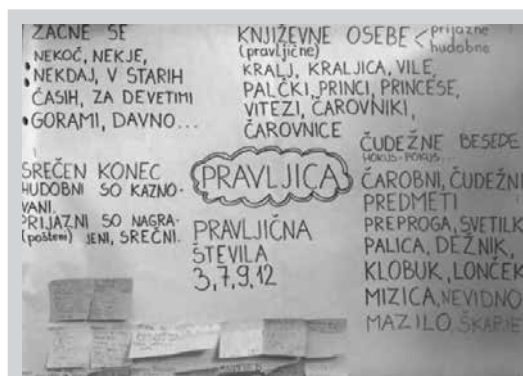 ZAČNE SE
NEKOČ, NEKJE,
NEKDAJ, V STARIH
ČASIH, ZA DEVETIMI
GORAMI, DAVNO...
KNJIŽEVNE OSEBE < prijazne
hudobne
(pravljične)
KRALJ, KRALJICA, VILE,
PALČKI, PRINCI, PRINCESE,
VITEZI, ČAROVNIKI,
ČAROVNICE
SREČEN KONEC
HUDOBNI SO KAZNO-
VANI.
PRIJAZNI SO NAGRA-
(pošteni) JENI, SREČNI.
PRAVLJICA
PRAVLJIČNA
ŠTEVILA
3,7,9,12
ČUDEŽNE BESEDE
HOKUS-POKUS...
ČAROBNI, ČUDEŽNI
PREDMETI
PREPROGA, SVETILK
PALICA, DEŽNIK,
KLOBUK, LONČEK
MIZICA, NEVIDNO
MAZILO, ŠKARJE